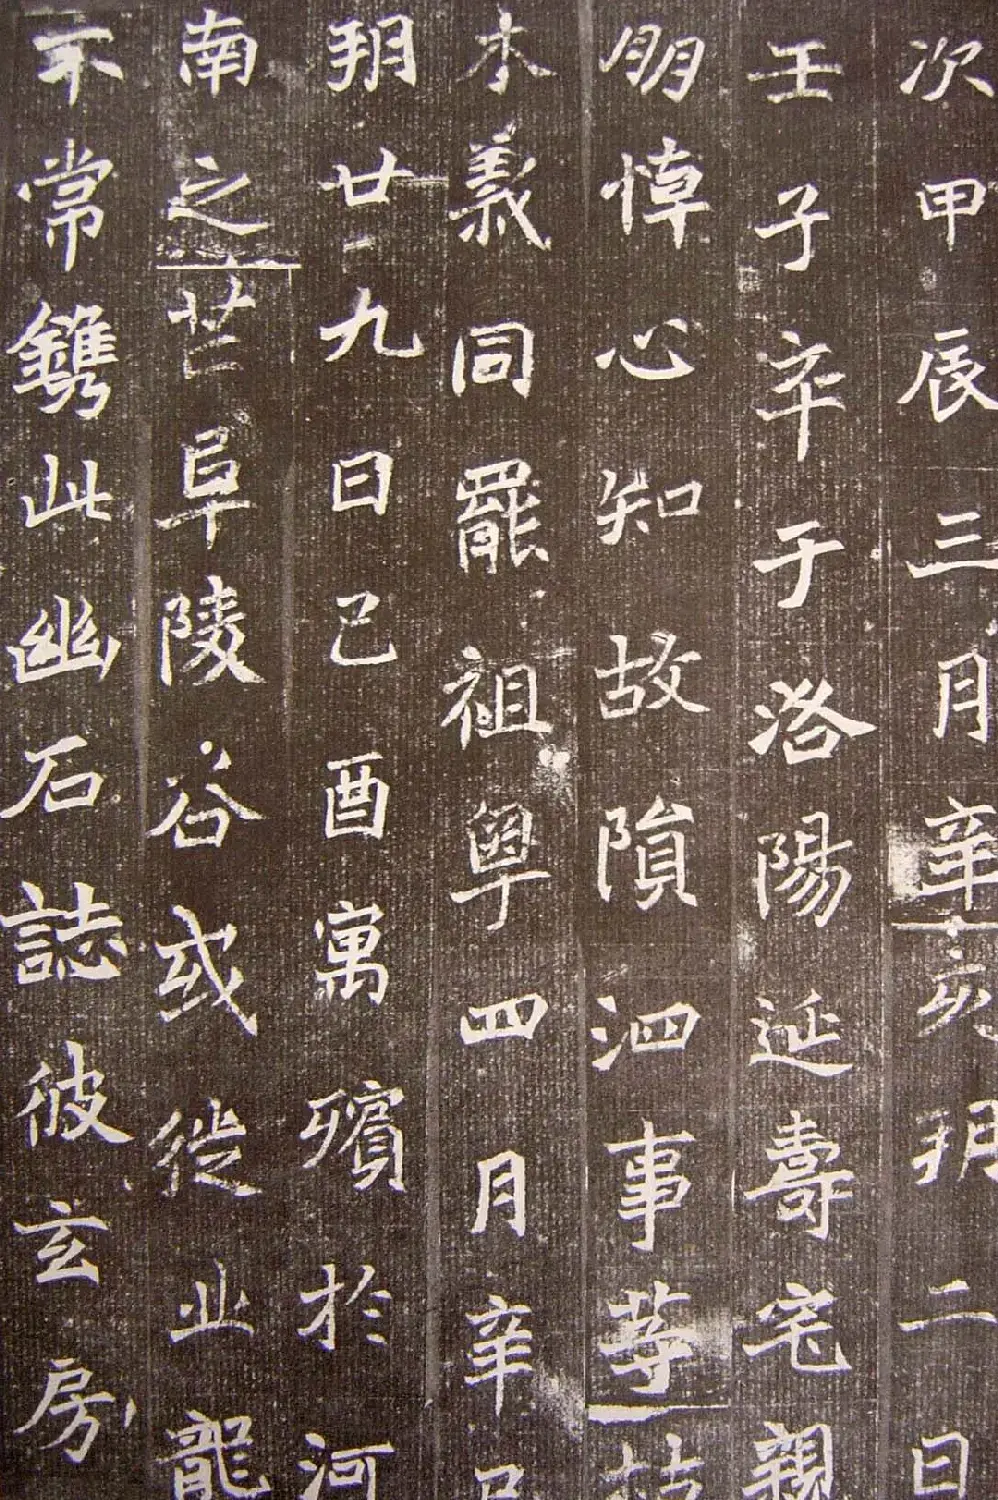 次甲辰三月辛亥朔二日
壬子卒于洛陽延壽宅親
朋悼心知故隕泗事等
木義同罷祖粤四月辛巳
朔廿九日己酉寓殯於河
南之芒阜陵谷或徙业龍
不常鐫此幽石誌彼玄房